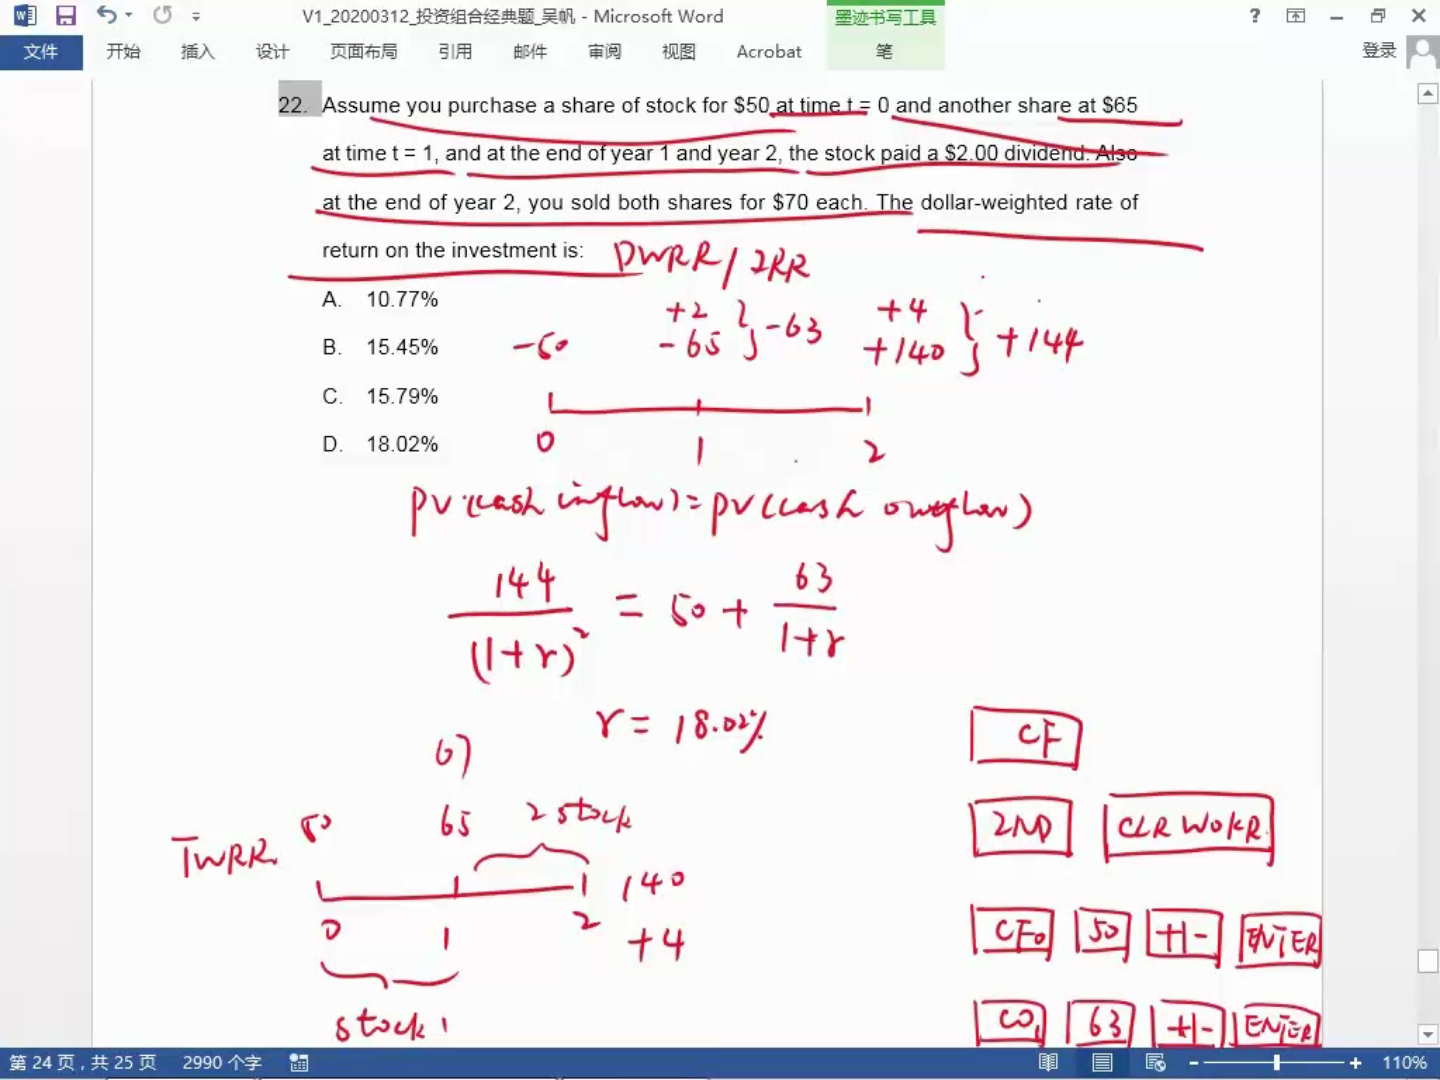 V1_20200312_投资组合经典题_吴帆 - Microsoft Word
墨迹书写工具
文件 开始 插入 设计 页面布局 引用 邮件 审阅 视图 Acrobat 笔 登录
22. Assume you purchase a share of stock for $50 at time t = 0 and another share at $65
at time t = 1, and at the end of year 1 and year 2, the stock paid a $2.00 dividend. Also
at the end of year 2, you sold both shares for $70 each. The dollar-weighted rate of
return on the investment is:
DWRR / IRR
A. 10.77%
B. 15.45%
C. 15.79%
D. 18.02%
+2 +4
-50 -65 } -63 +140 } +144
0 1 2
PV(cash inflow) = PV(cash outflow)
144 / (1+r)² = 50 + 63 / 1+r
r = 18.02%
CF
50 65 2 stock
2ND CLR WOKR
TWRR
140
0 1 2 +4
CF0 50 +|- ENTER
stock 1
CO1 63 +|- ENTER
第 24 页，共 25 页 2990 个字 110%